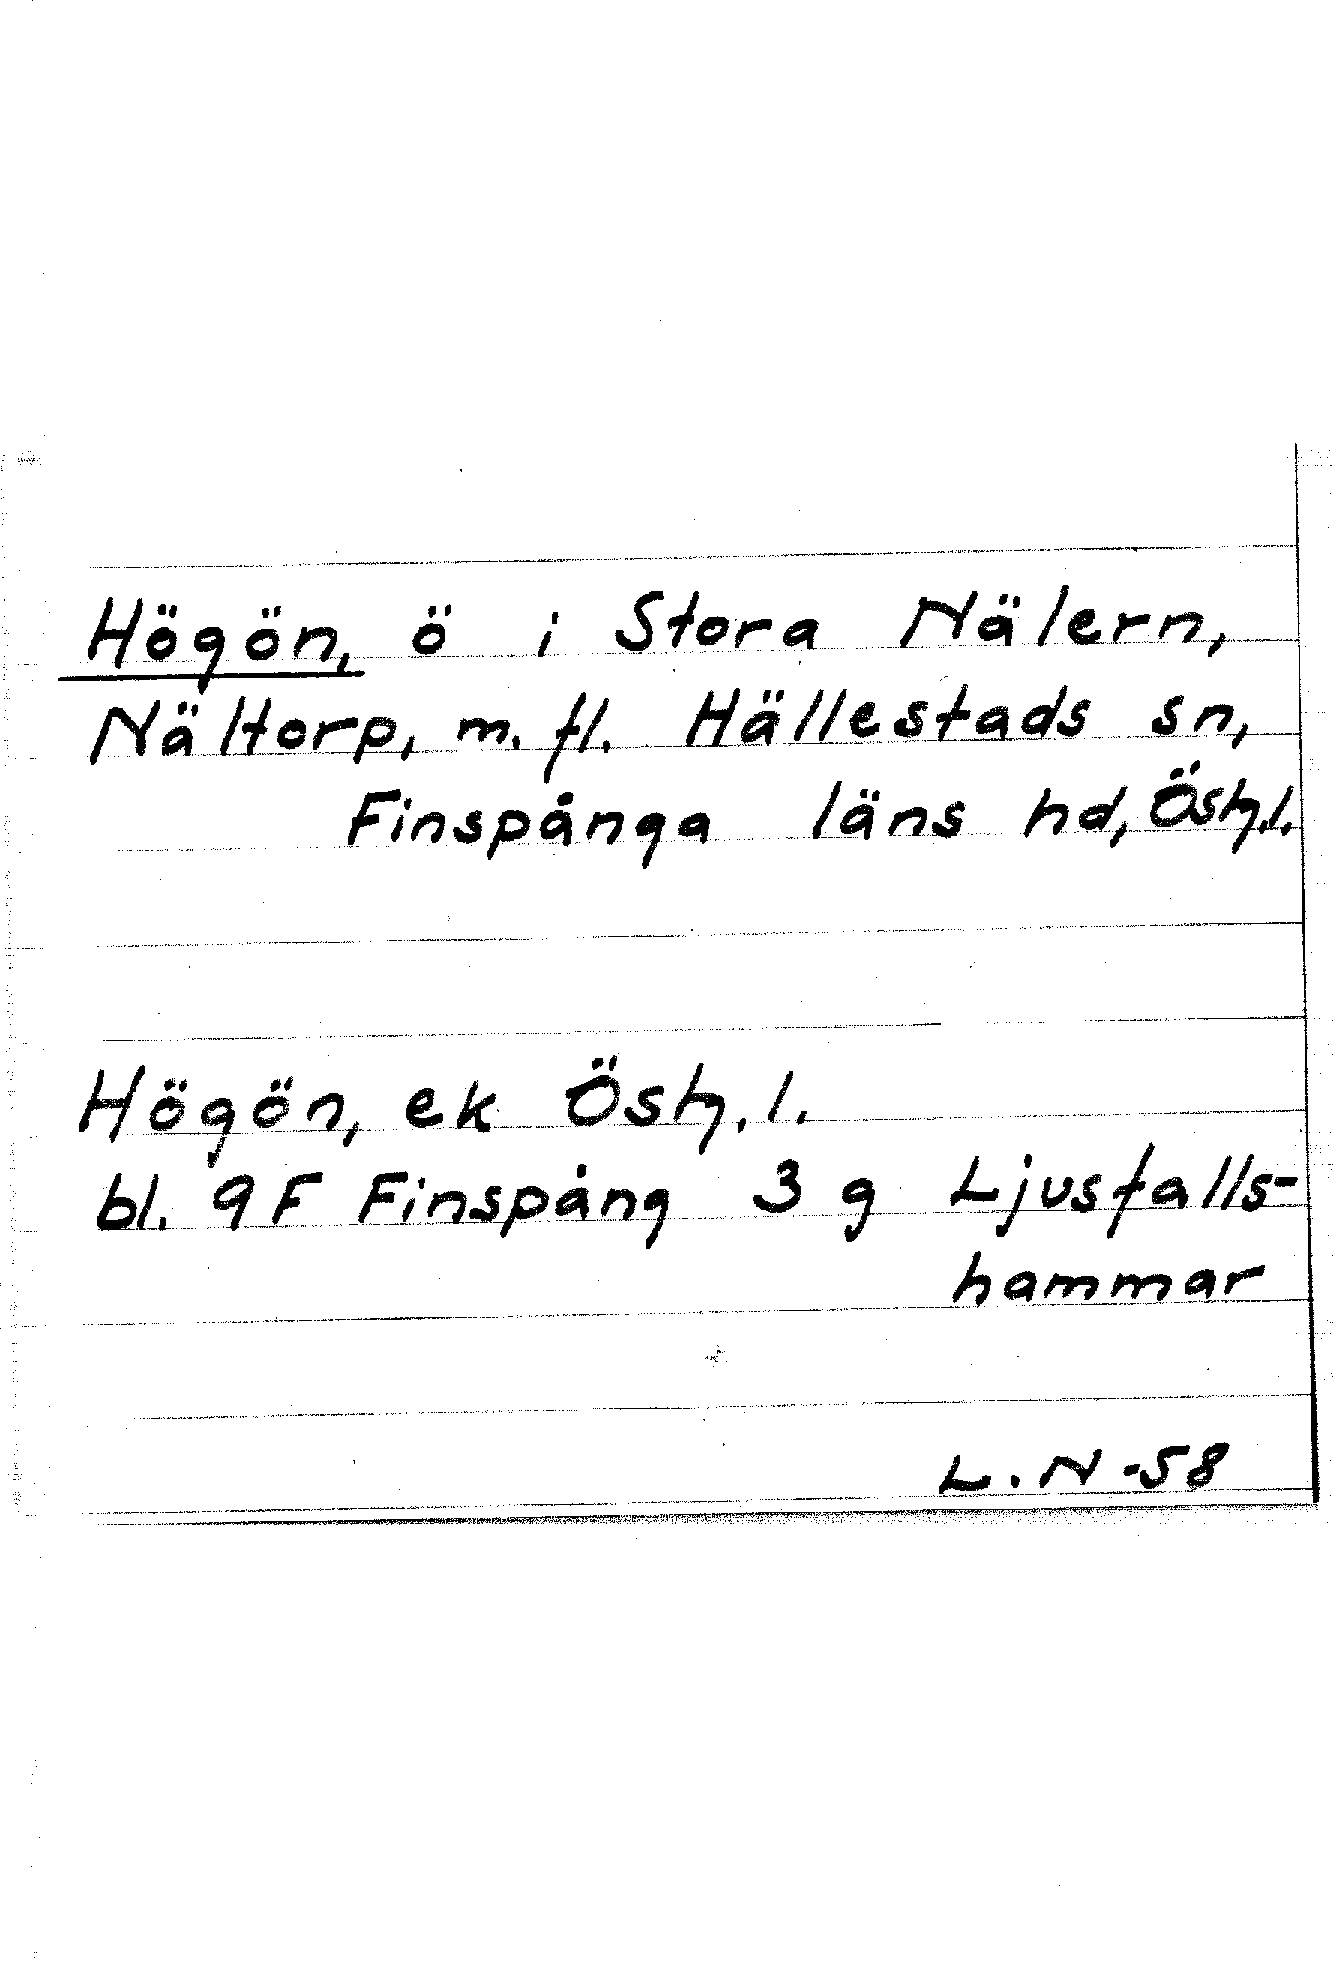 Högön, ö i Stora Nälern,
Nältorp, m. fl. Hällestads sn,
Finspånga läns hd, Östg.l.
Högön, ek Östg.l.
bl. 9F Finspång 3 g Ljusfalls-
hammar
L.N -58